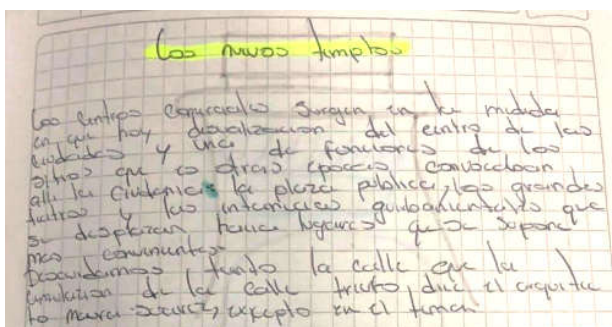 Los nuevos templos
Los centros comerciales surgen en la medida
en que hay desvalizacion del centro de las
ciudades y una de funciones de los
sitios que en otras epocas convocaban
alli la ciudania la plaza publica, las grandes
teatros y las intancias gubernamentales que
se desplazan hacia lugares que se supone
mas convenientes
Descuidamos tanto la calle que la
simulacion de la calle triunfo, dice el arquitec
to excepto en el